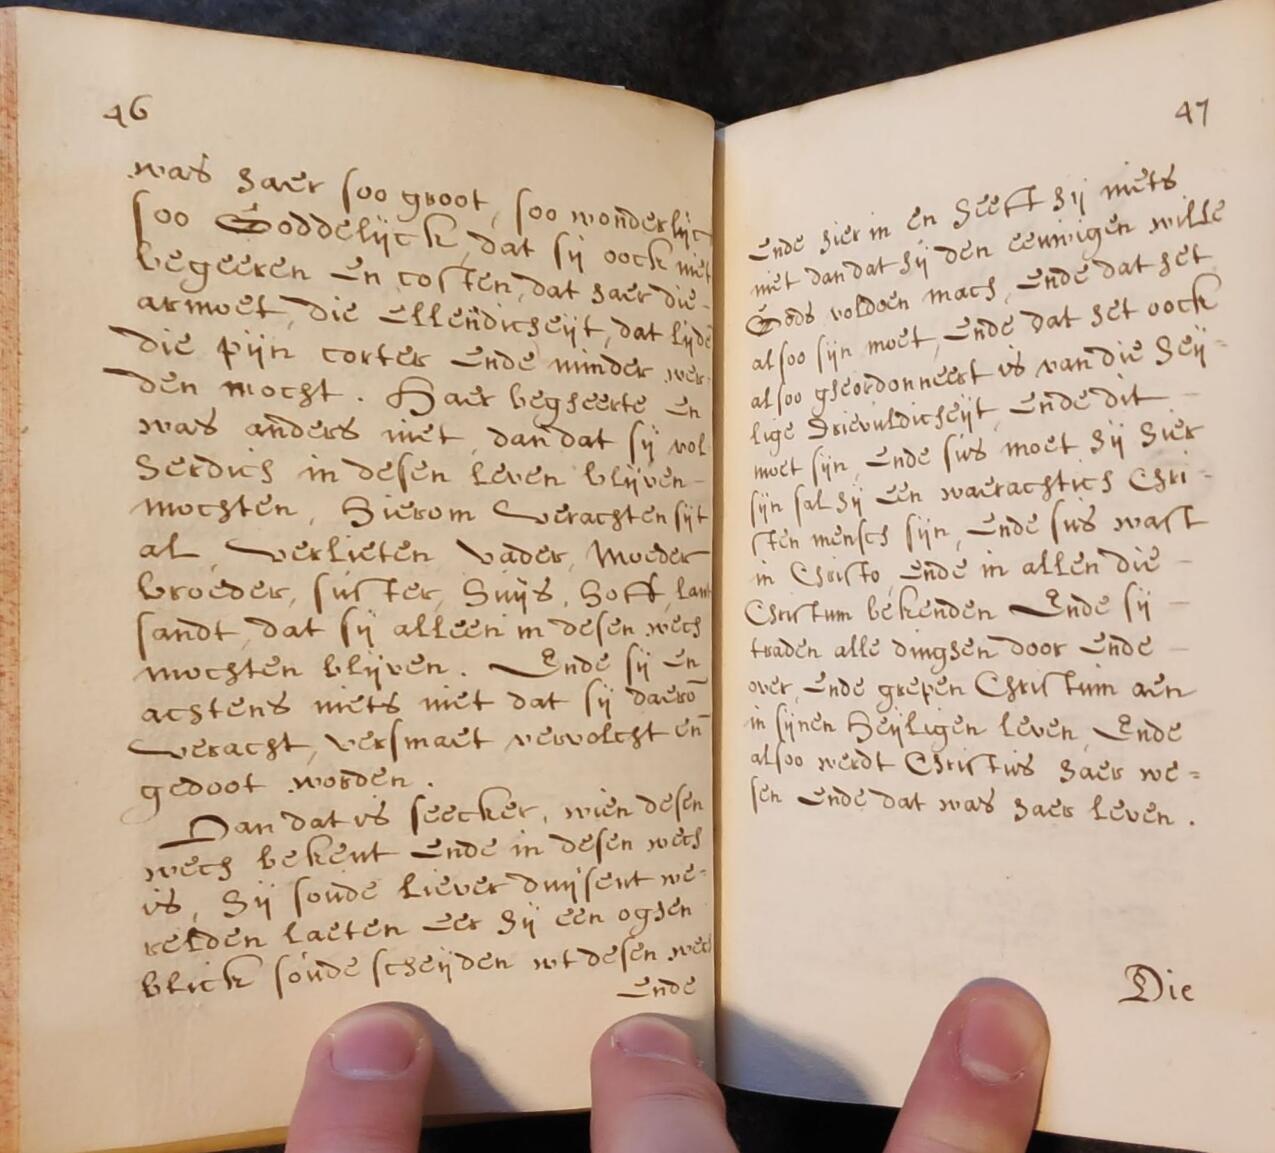 46
was haer soo groot, soo wonderlijck
soo Goddelijck, dat sij oock niet
begeeren en costen, dat haer die-
armoet, die ellendicheijt, dat lijdē
die pijn corter ende minder wer-
den mocht. Haer begheerte en
was anders niet, dan dat sij vol
herdich in desen leven blijven-
mochten, Hierom verachten sijt
al, verlieten vader, Moeder
broeder, suster, huijs, hoff, lant
sandt, dat sij alleen in desen wech
mochten blijven. Ende sij en
achtens niets niet dat sij daerō
veracht, versmaet vervolcht eñ
gedoot worden.
Dan dat is seecker, wien desen
wech bekent ende in desen wech
is, hij soude liever duijsent we-
relden laeten eer hij een oghen
blick soude scheijden wt desen wech
Ende
47
Ende hier in en heeft hij niets
niet dan dat hij den eeuwigen wille
Gods voldoen mach, ende dat het
alsoo sijn moet, ende dat het oock
alsoo gheordonneert is van die hey=
lige Drievuldicheijt, ende dit -
moet sijn, ende sus moet hij hier
sijn sal hij een waerachtich Chri-
sten mensch sijn, ende sus wast
in Christo, ende in allen die -
Christum bekenden Ende sij -
traden alle dinghen door ende -
over, ende grepen Christum aen
in sijnen heijligen leven, Ende
alsoo werdt Christus haer we=
sen ende dat was haer leven.
Die